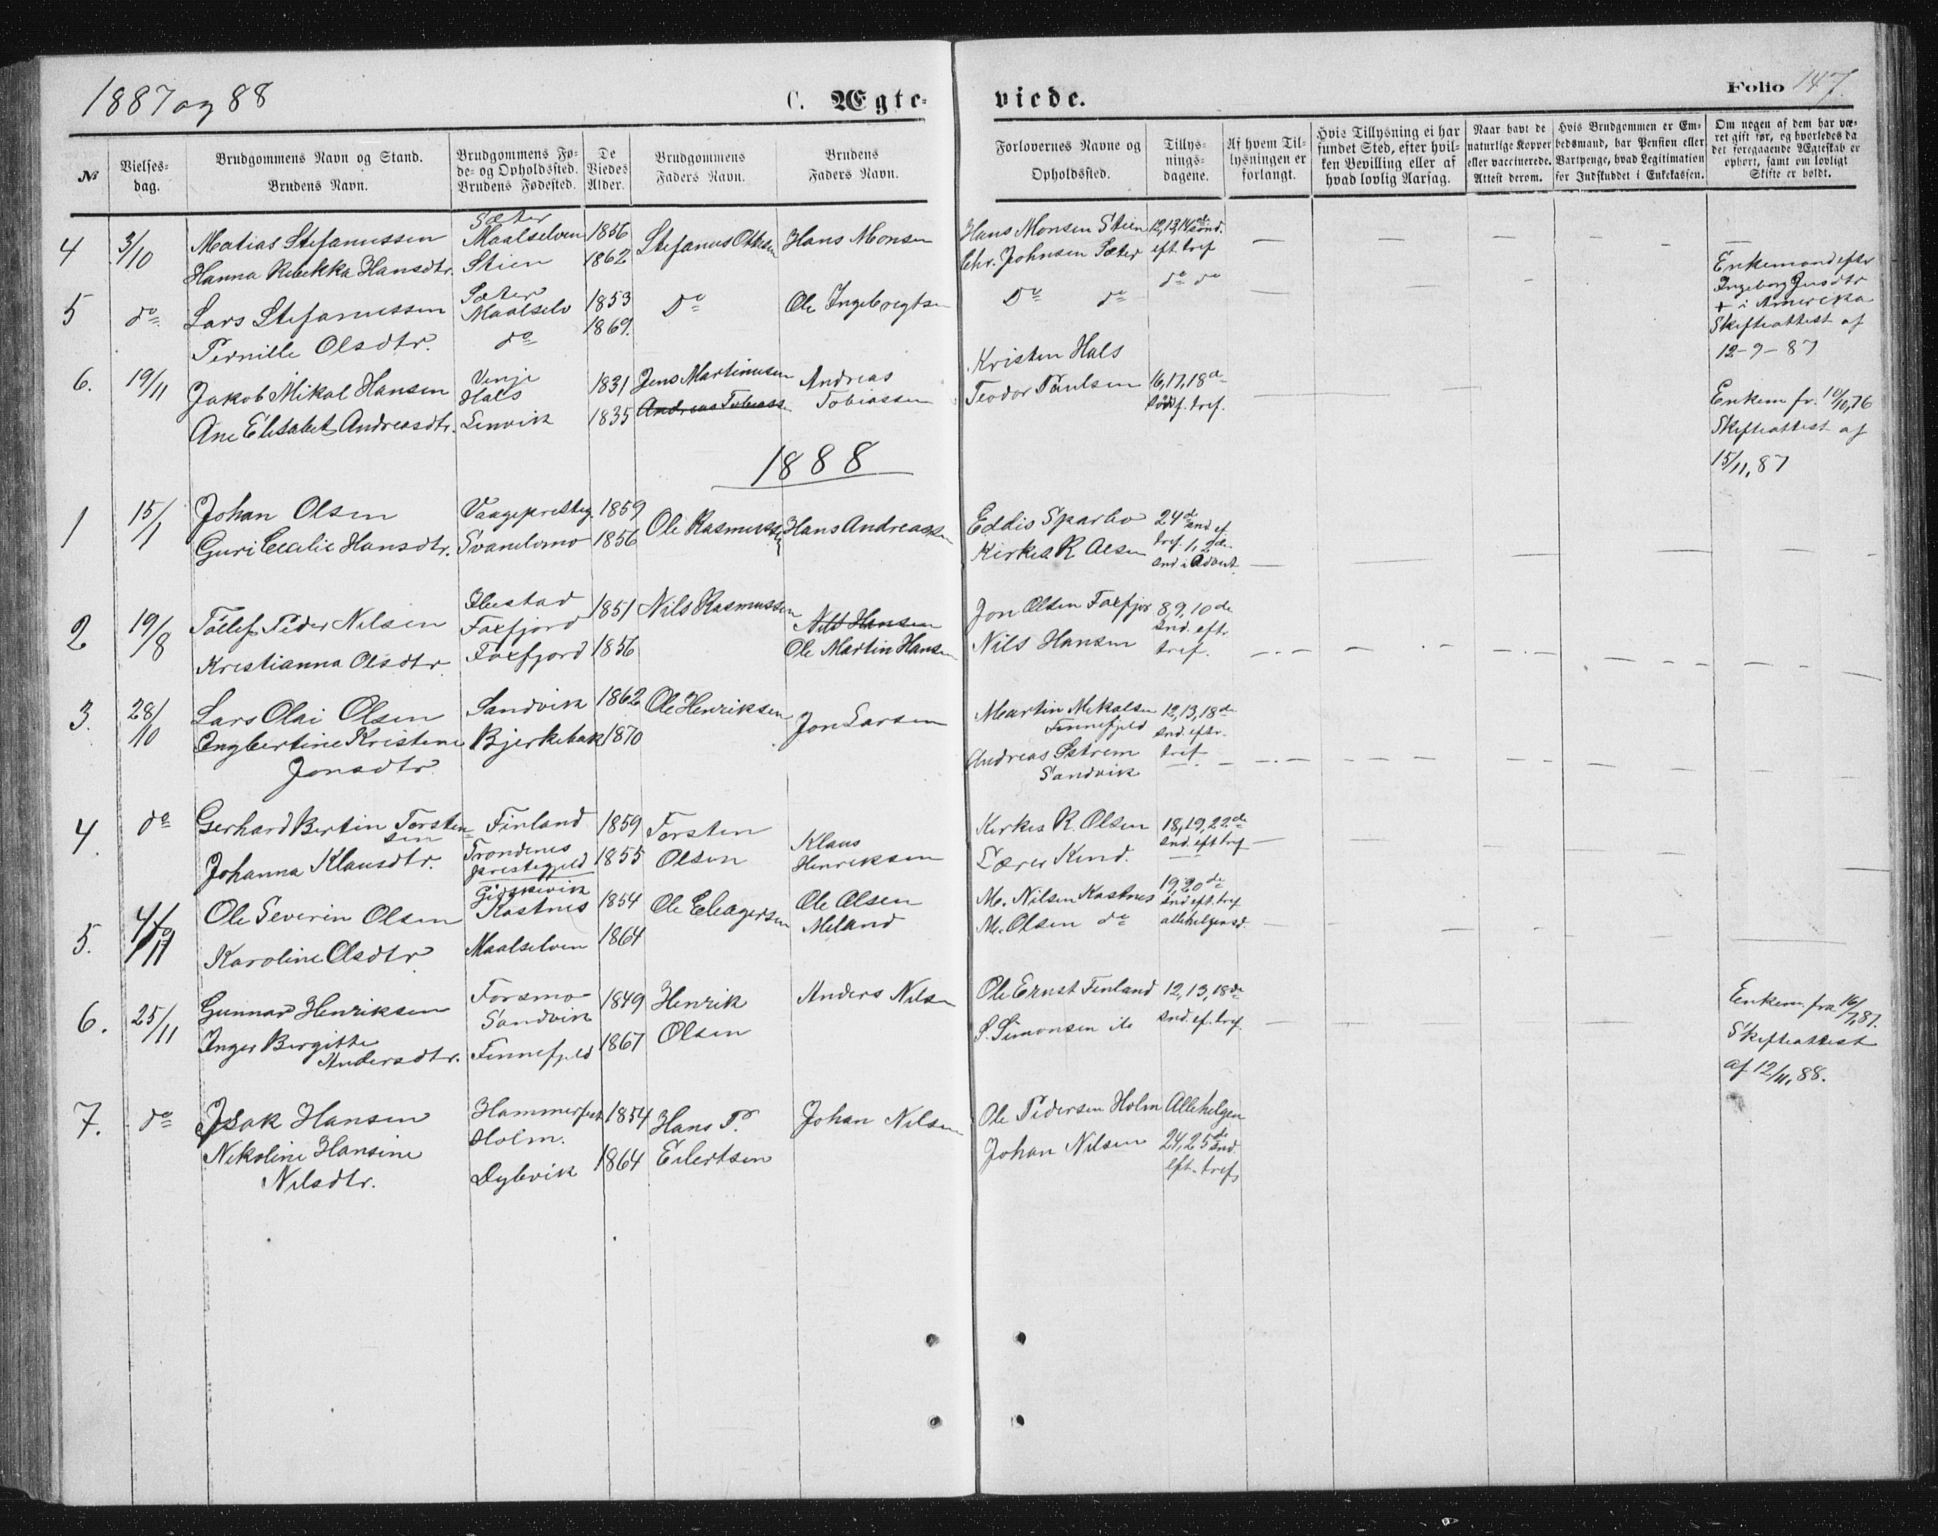 1887 og 88
C. Ægte-
viede.
Folio 147.
№
Vielses-
dag.
Brudgommens Navn og Stand.
Brudens Navn.
Brudgommens Fø-
de- og Opholdssted.
Brudens Fødested.
De
Viedes
Alder.
Brudgommens
Faders Navn.
Brudens
Faders Navn.
Forlovernes Navne og
Opholdssted.
Tillys-
nings-
dagene.
Af hvem Til-
lysningen er
forlangt.
Hvis Tillysning ei har
fundet Sted, efter hvil-
ken Bevilling eller af
hvad lovlig Aarsag.
Naar havt de
naturlige Kopper
eller vaccinerede.
Attest derom.
Hvis Brudgommen er Em-
bedsmand, har Pension eller
Vartpenge, hvad Legitimation
for Indskuddet i Enkekassen.
Om nogen af dem har væ-
ret gift før, og hvorledes da
det foregaaende Ægteskab er
ophørt, samt om lovligt
Skifte er holdt.
4 3/10 Matias Stefanussen
Hanna Rebekka Hansdtr.
Sæter
Maalselven
Stien
1856
1862
Stefanus Ottesen
Hans Monsen
Hans Monsen Stien
Chr. Johnsen Sæter
12,13,14de sönd.
eft. tref
5 do Lars Stefanussen
Pernille Olsdtr.
Sæter
Maalselv
do
1853
1869.
Do
Ole Ingebregtsen
Do do
do do
Enkemand efter
Ingeborg Jensdtr
+ i Amerika
Skifteattest af
12-9-87
6. 19/11 Jakob Mikal Hansen
Ane Elisabet Andreasdtr.
Vinje
Hals
Lenvik
1831
1835
Jens Martinusen
Andreas Tobiass.
Andreas
Tobiassen
Kristen Hals
Teodor Paulsen
16,17,18de
sönd f. tref.
Enkem fr. 10/10,76
Skifteattest af
15/11,87
1888
1 15/1 Johan Olsen
Guri Cecilie Hansdtr.
Vaagepresteg.
Svanelvmo
1859
1856
Ole Rasmussen
Hans Andreassen
Eddis Sparbo
Kirkes. R Olsen
24de snd ef
tref. 1, 2den
snd. i Advent.
2 19/8 Tollef Peder Nilsen
Kristianna Olsdtr.
Ibestad
Faxfjord
Faxfjord
1851
1856
Nils Rasmussen
Nils Hansen
Ole Martin Hansen
Jon Olsen Faxfjor
Nils Hansen
8,9,10de
snd. eft.
tref.
3. 28/10 Lars Olai Olsen
Ingbertine Kristine
Jonsdtr.
Sandvik
Bjerkebak
1862
1870
Ole Henriksen
Jon Larsen
Martin Mikalsen
Finnefjeld
Andreas Østrem
Sandvik
12,13,18de
snd. eftr.
tref
4. do Gerhard Bertin Torsten-
sen
Johanna Klausdtr.
Finland
Trondenes
prestegjeld
1859
1855
Torsten
Olsen
Klaus
Henriksen
Kirkes R. Olsen
Lærer Kind.
18,19,22de
snd. eft tref
5. 4/11 Ole Severin Olsen
Karoline Olsdtr
Gidskevik
Kastnes
Maalselven
1854
1864
Ole Eliagersen
Ole Olsen
Meland
M. Nilsen Kastnes
M. Olsen do
19,20de
snd eft. tref
allehelgensd.
6. 25/11 Gunnar Henriksen
Inger Birgitte
Andersdtr.
Forsmo
Sandvik
Finnefjeld
1849
1867
Henrik
Olsen
Anders Nilsen
Ole Ernst Finland
S. Simonsen ito
12,13,18de
snd. ef. tref.
Enkem. fra 16/7,87.
Skifteattest
af 12/11,88.
7. do Isak Hansen
Nikoline Hansine
Nilsdtr.
Hammerfest
Holm.
Dybvik
1854
1864
Hans P.
Eilertsen
Johan Nilsen
Ole Pedersen Holm
Johan Nilsen
Allehelgen
24,25de snd.
eft. tref.